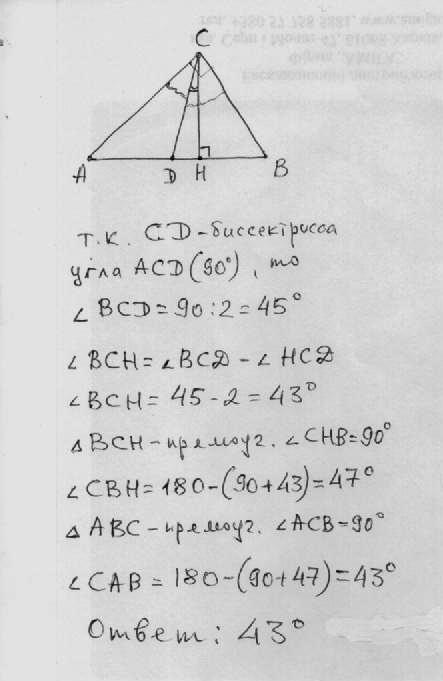 C
A
D
H
B
т.к. CD-биссектриса
угла ACD(90°), то
∠ BCD=90:2=45°
∠ BCH=∠BCD-∠ HCD
∠ BCH= 45-2=43°
Δ BCH-прямоуг. ∠ CHB=90°
∠ CBH=180-(90+43)=47°
Δ ABC-прямоуг. ∠ACB=90°
∠ CAB = 180-(90+47)=43°
Ответ: 43°